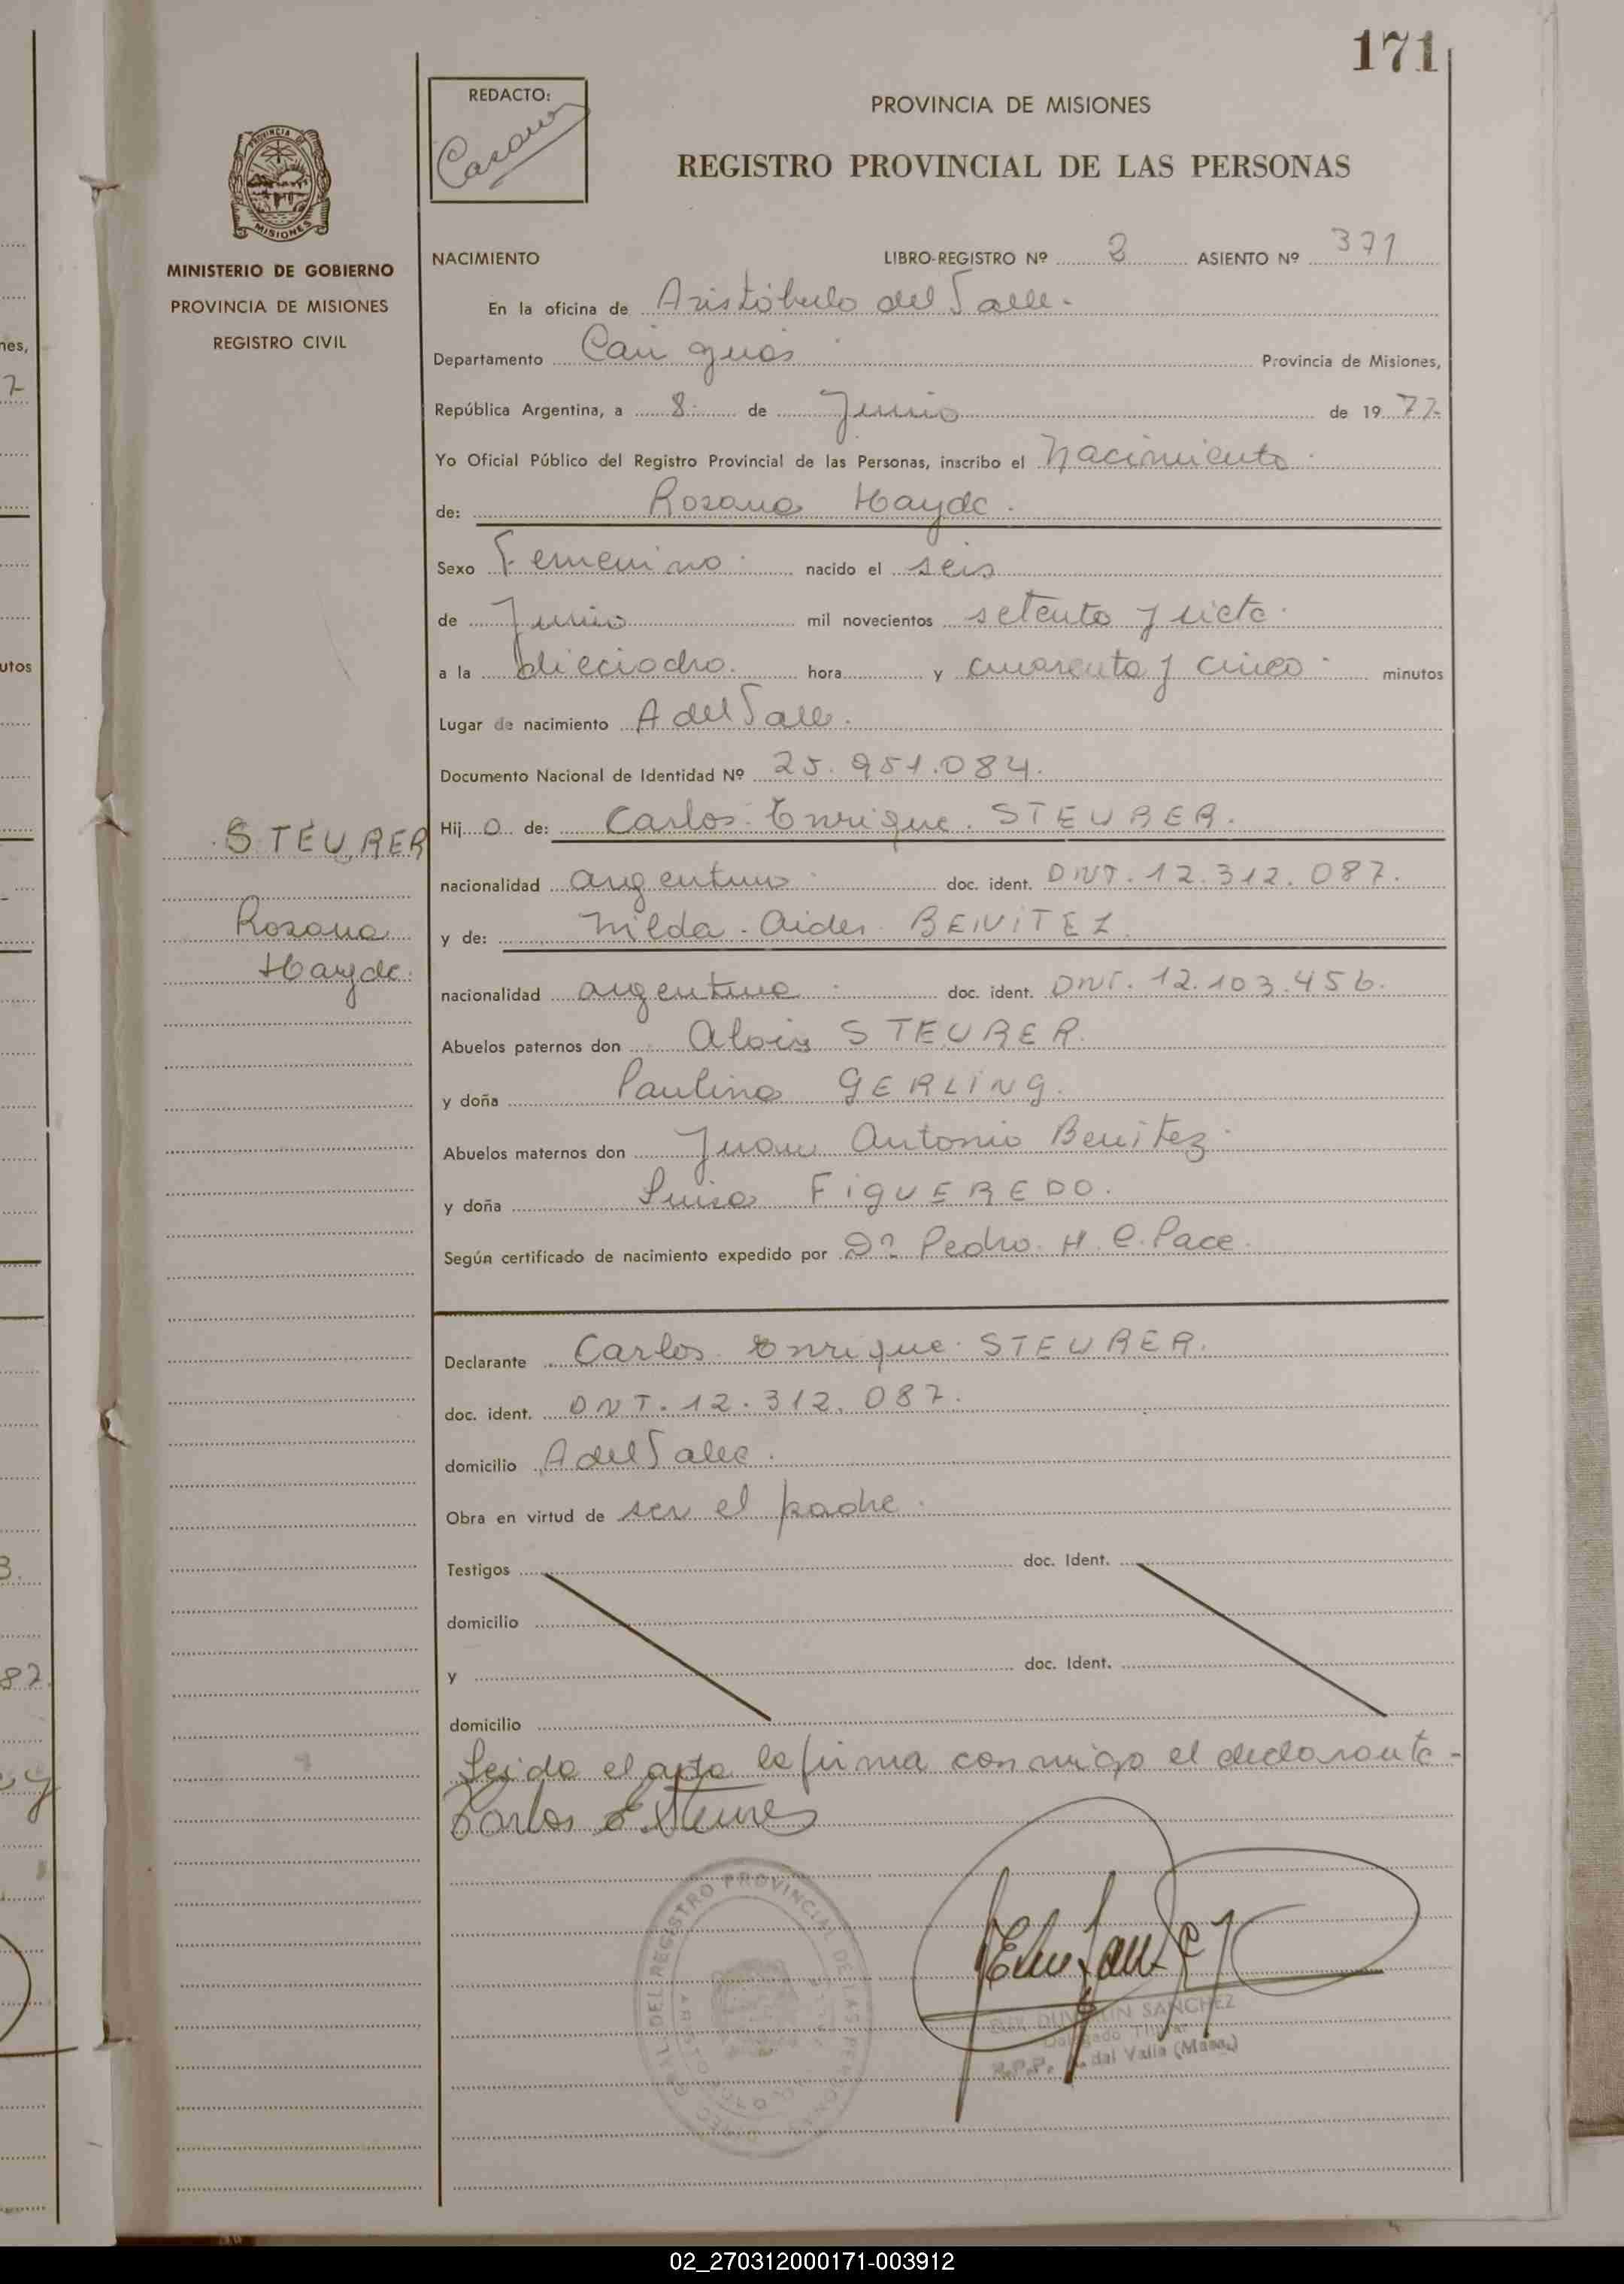 171
REDACTO:
PROVINCIA DE MISIONES
REGISTRO PROVINCIAL DE LAS PERSONAS
PROVINCIA DE
MISIONES
MINISTERIO DE GOBIERNO
PROVINCIA DE MISIONES
REGISTRO CIVIL
NACIMIENTO LIBRO-REGISTRO Nº 2 ASIENTO Nº 371
En la oficina de Aristóbulo del Valle.
Departamento Cainguás Provincia de Misiones,
República Argentina, a 8 de Junio de 1977
Yo Oficial Público del Registro Provincial de las Personas, inscribo el Nacimiento
de: Rosana Hayde.
Sexo Femenino nacido el seis
de Junio mil novecientos setenta y siete
a la dieciocho. hora y cuarenta y cinco minutos
Lugar de nacimiento A del Valle.
Documento Nacional de Identidad Nº 25.951.084.
Hij o de: Carlos Enrique STEURER.
nacionalidad argentino doc. ident. DNI. 12.312.087.
y de: Nilda Aider BENITEZ
nacionalidad argentina doc. ident. DNI. 12.103.456.
Abuelos paternos don Alois STEURER.
y doña Paulina GERLING.
Abuelos maternos don Juan Antonio Benitez
y doña Luisa FIGUEREDO.
Según certificado de nacimiento expedido por Dr Pedro H. C. Pace.
STEURER
Rosana
Hayde.
Declarante Carlos Enrique STEURER.
doc. ident. DNI. 12.312.087.
domicilio A del Valle.
Obra en virtud de ser el padre.
Testigos doc. Ident.
domicilio
y doc. Ident.
domicilio
Leida el acta la firma conmigo el declarante-
Carlos E. Steurer
REGISTRO PROVINCIAL DE LAS PERSONAS
SANCHEZ
Delegado Titular
R.P.P. A. del Valle (Mnes.)
02_270312000171-003912